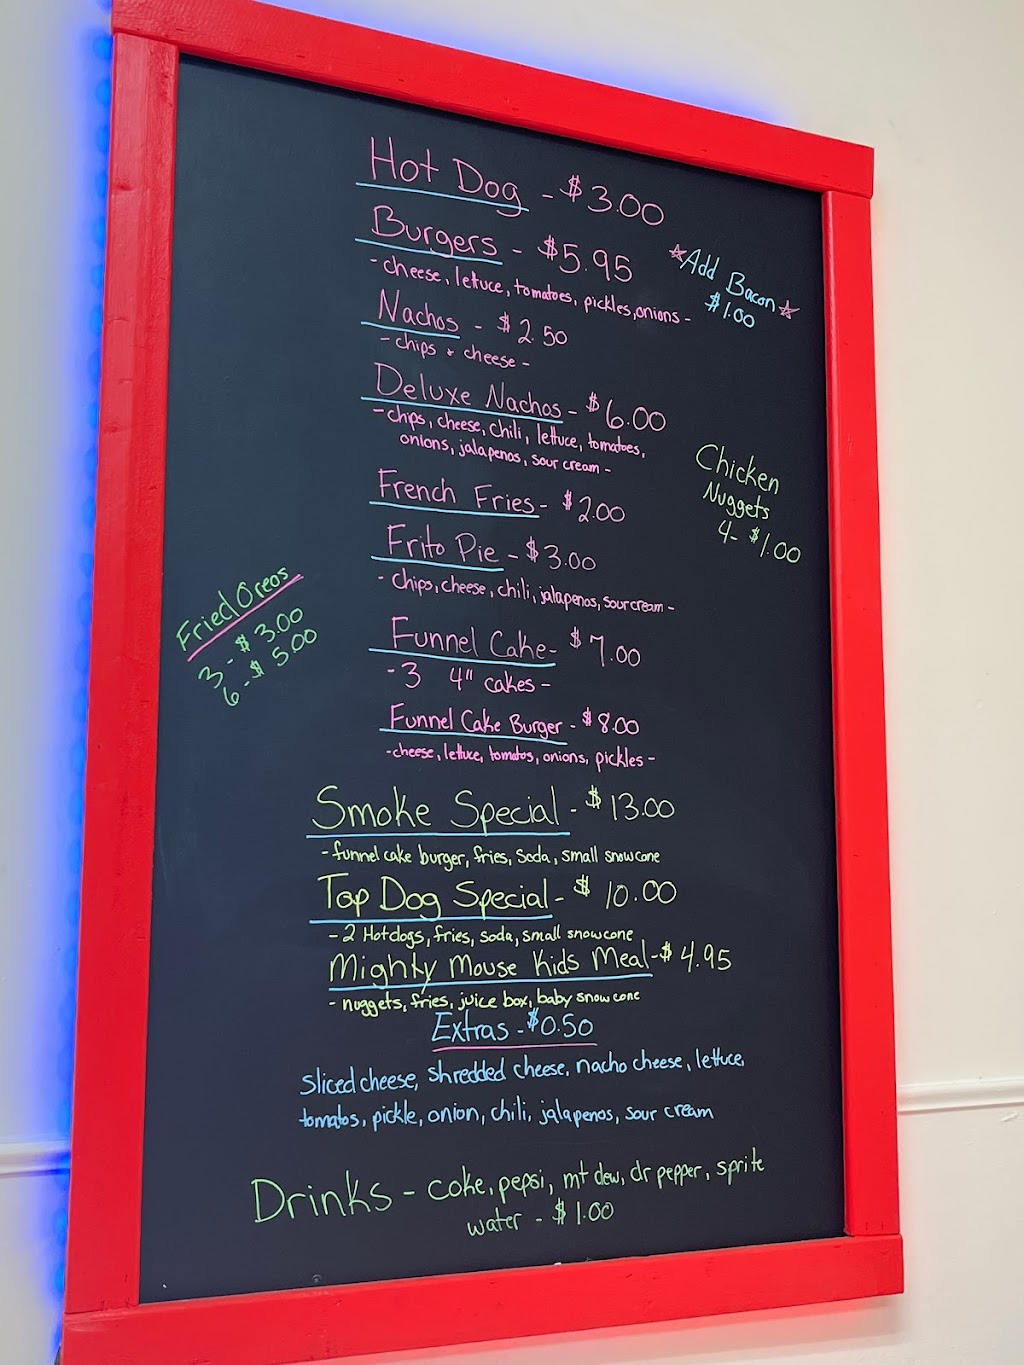 Hot Dog - $3.00
Burgers - $5.95
- cheese, lettuce, tomatoes, pickles, onions -
☆Add Bacon☆
$1.00
Nachos - $2.50
- chips + cheese -
Deluxe Nachos - $6.00
- chips, cheese, chili, lettuce, tomatoes,
onions, jalapenos, sour cream -
Chicken
Nuggets
4 - $1.00
French Fries - $2.00
Frito Pie - $3.00
- chips, cheese, chili, jalapenos, sour cream -
Fried Oreos
3 - $3.00
6 - $5.00
Funnel Cake - $7.00
- 3 4" cakes -
Funnel Cake Burger - $8.00
- cheese, lettuce, tomatos, onions, pickles -
Smoke Special - $13.00
- funnel cake burger, fries, soda, small snowcone
Top Dog Special - $10.00
- 2 Hotdogs, fries, soda, small snowcone
Mighty Mouse Kids Meal - $4.95
- nuggets, fries, juice box, baby snowcone
Extras - $0.50
sliced cheese, shredded cheese, nacho cheese, lettuce,
tomatos, pickle, onion, chili, jalapenos, sour cream
Drinks - coke, pepsi, mt dew, dr pepper, sprite
water - $1.00